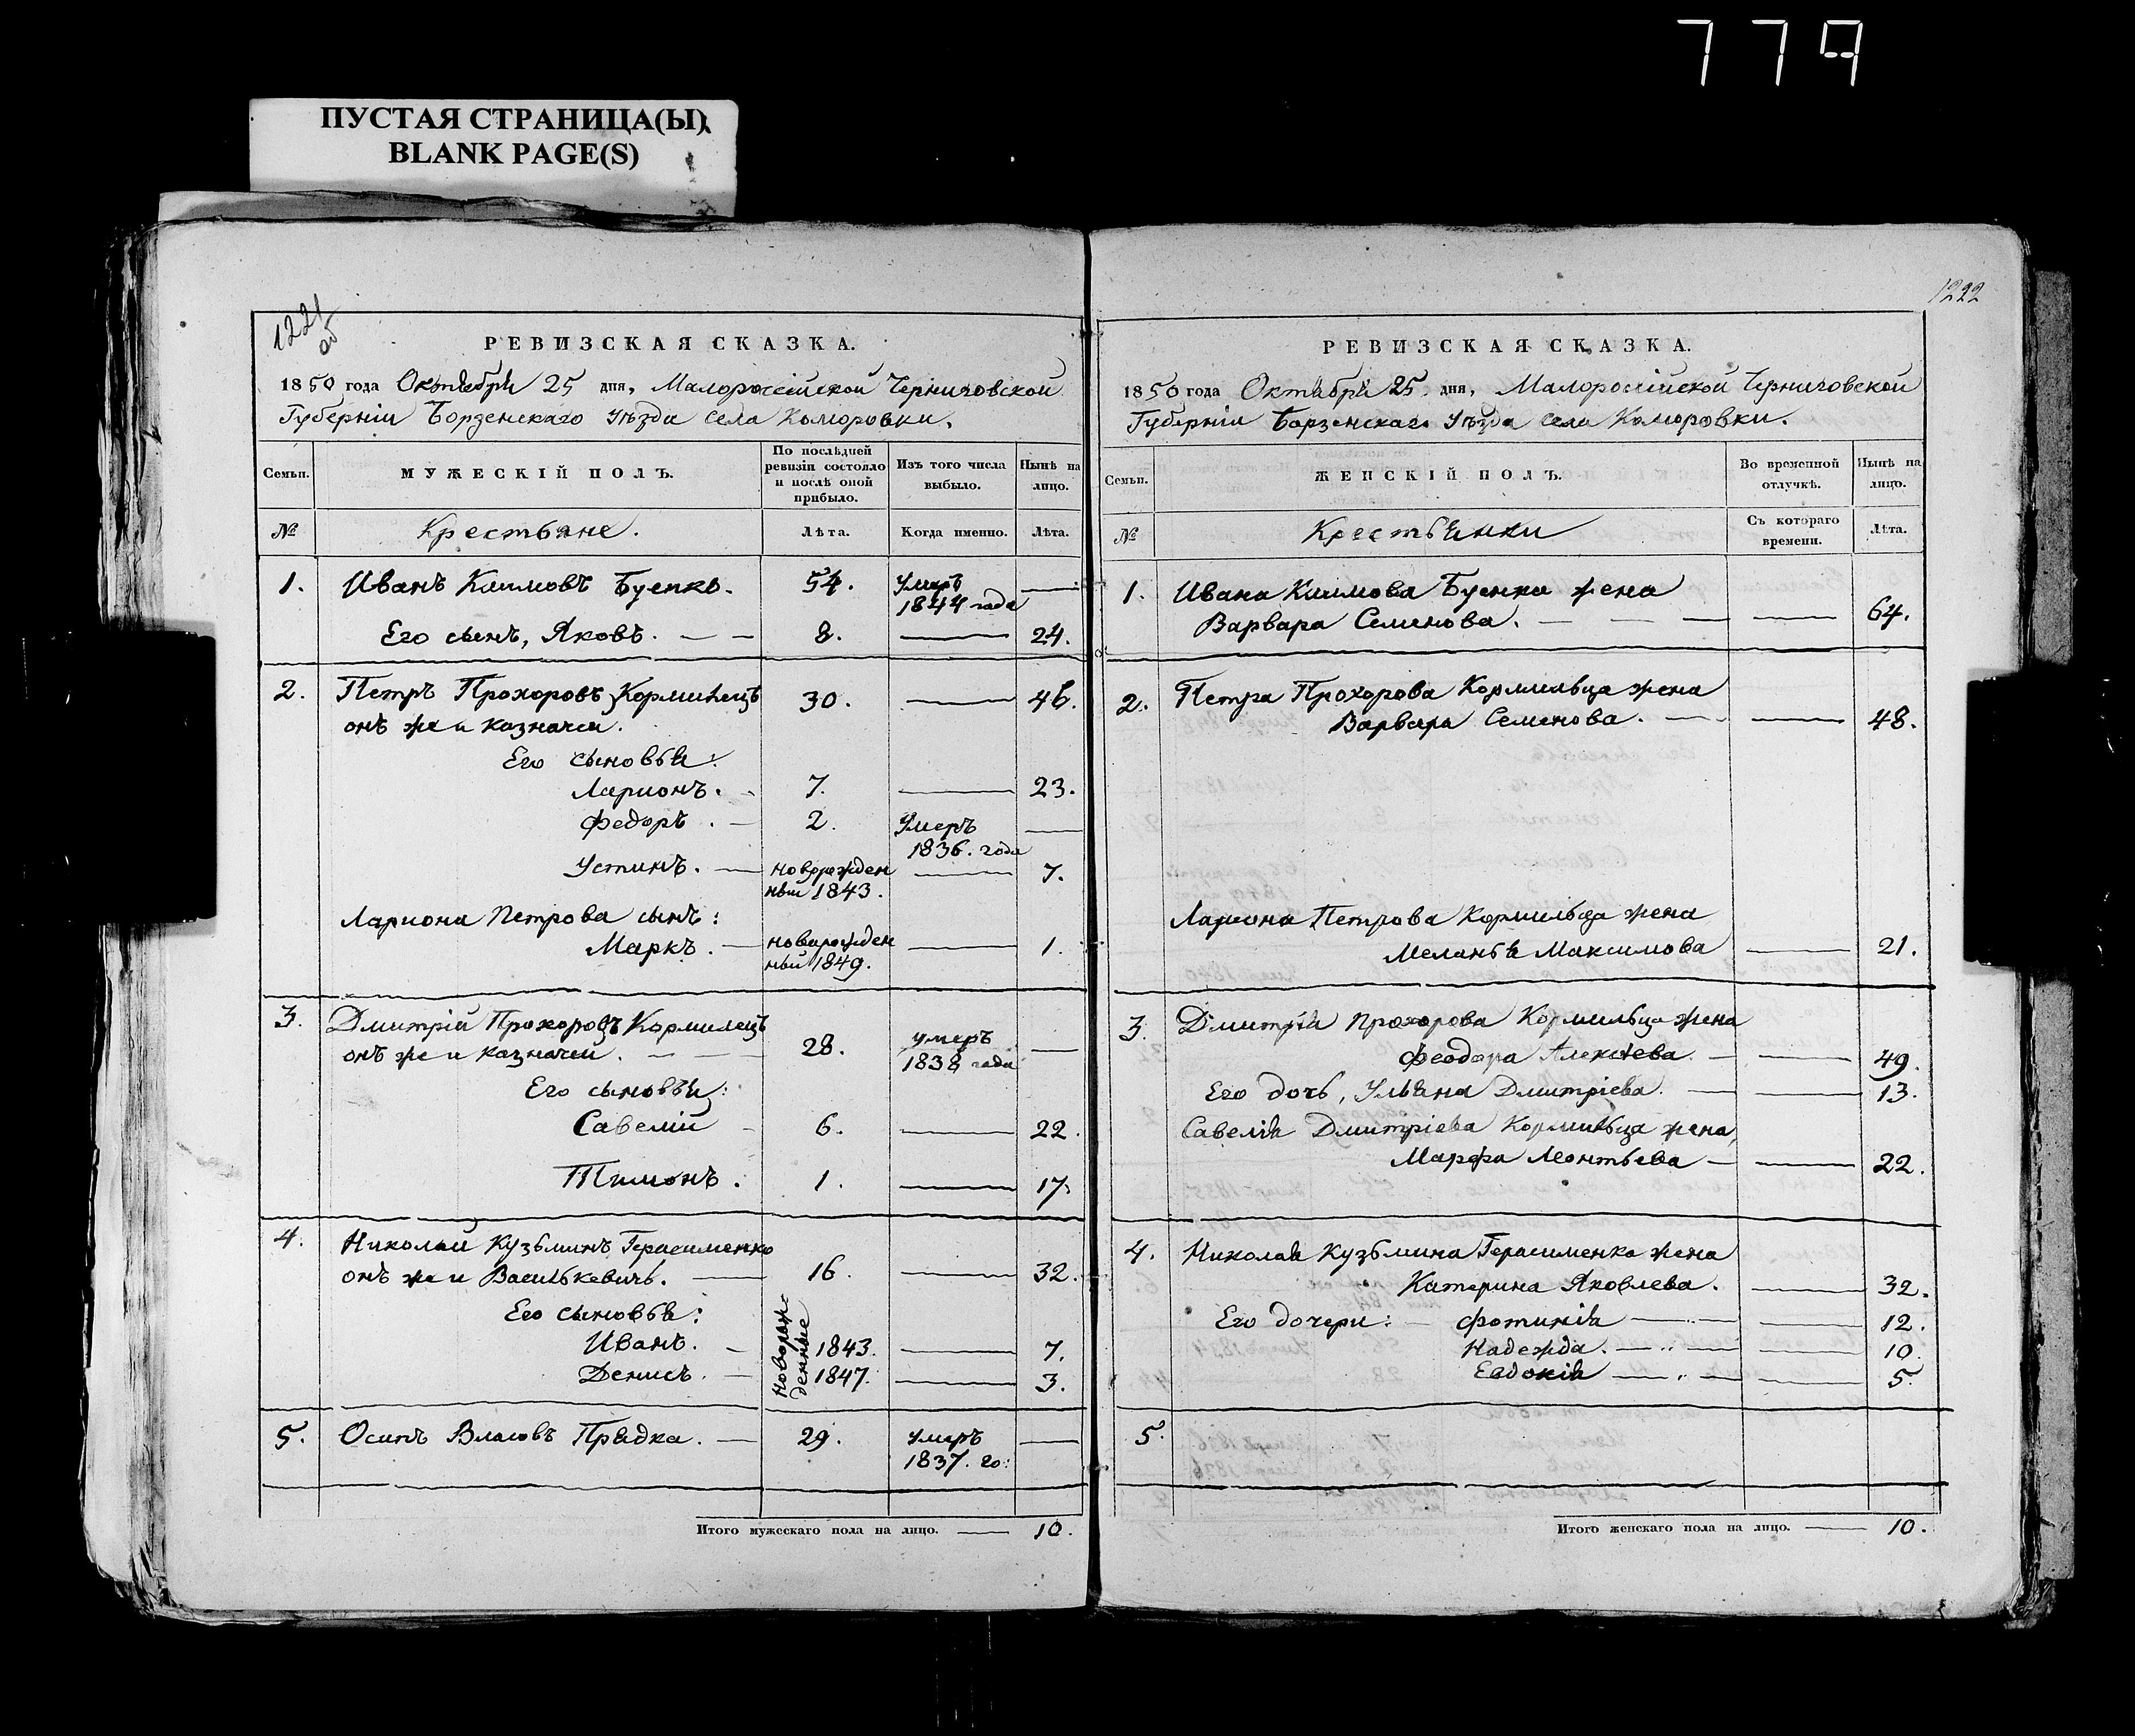 779
ПУСТАЯ СТРАНИЦА(Ы)
BLANK PAGE(S)
1221
об
РЕВИЗСКАЯ СКАЗКА.
1850 года Октября 25 дня, Малороссійской Черниговской
Губерніи Борзенскаго Уѣзда села Коморовки.
Семьи.
МУЖЕСКІЙ ПОЛЪ.
По послѣдней ревизіи состояло и послѣ оной прибыло.
Изъ того числа выбыло.
Нынѣ на лицо.
№
Крестьяне.
Лѣта.
Когда именно.
Лѣта.
1. Иванъ Климовъ Буенко. 54. Умеръ 1844 года
Его сынъ, Яковъ. 8. 24.
2. Петръ Прохоровъ Кормилецъ 30. 46.
онъ же и казначей.
Его сыновья:
Ларионъ. 7. 23.
Федоръ. 2. Умеръ 1836. года
Устинъ. новорожденный 1843. 7.
Лариона Петрова сынъ:
Маркъ. новорожденный 1849. 1.
3. Дмитрій Прохоровъ Кормилецъ
онъ же и казначей. 28. умеръ 1838 года
Его сыновья:
Савелій 6. 22.
Тимонъ. 1. 17.
4. Николай Кузьминъ Герасименко
онъ же и Василькевичь. 16. 32.
Его сыновья:
Иванъ. новорожденные 1843. 7.
Денисъ. 1847. 3.
5. Осипъ Власовъ Прядка. 29. Умеръ 1837. го:
Итого мужескаго пола на лицо. 10.
1222
РЕВИЗСКАЯ СКАЗКА.
1850 года Октября 25. дня, Малоросійской Черниговской
Губерніи Борзенскаго Уѣзда села Коморовки.
Семьи.
ЖЕНСКІЙ ПОЛЪ.
Во временной отлучкѣ.
Нынѣ на лицо.
№
Крестьянки
Съ котораго времени.
Лѣта.
1. Ивана Климова Буенка жена
Варвара Семенова. 64.
2. Петра Прохорова Кормильца жена
Варвара Семенова. 48.
Лариона Петрова Кормильца жена
Меланья Максимова 21.
3. Дмитрія Прохорова Кормильца жена
Феодора Алексѣева. 49.
Его дочь, Ульяна Дмитріева. 13.
Савелія Дмитріева Кормильца жена,
Марфа Леонтьева 22.
4. Николая Кузьмина Герасименка жена
Катерина Яковлева. 32.
Его дочери: Фотинія 12.
Надежда. 10.
Евдокія 5.
5.
Итого женскаго пола на лицо. 10.